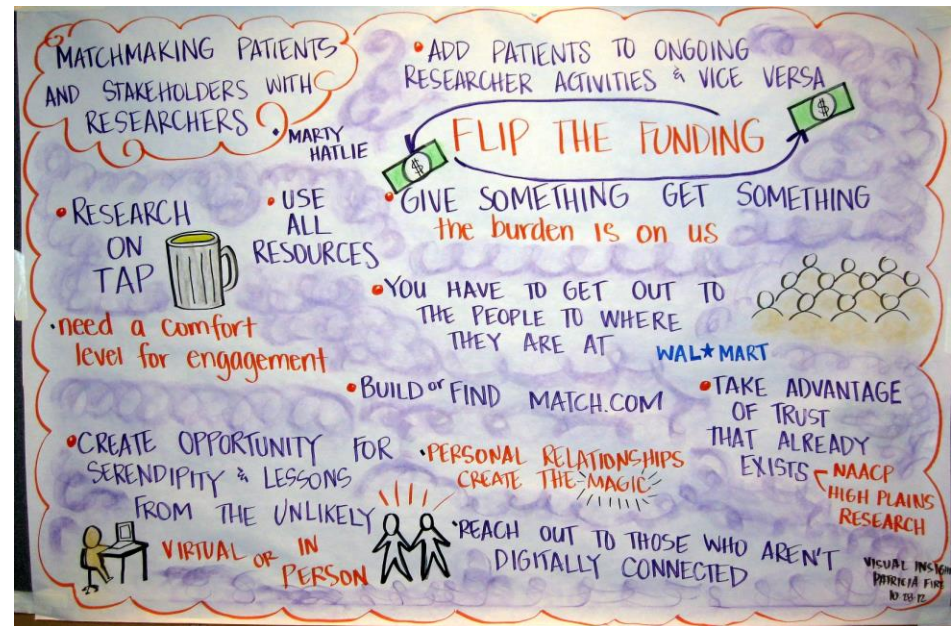 MATCHMAKING PATIENTS
AND STAKEHOLDERS WITH
RESEARCHERS
• MARTY
HATLIE
• ADD PATIENTS TO ONGOING
RESEARCHER ACTIVITIES & VICE VERSA
$
FLIP THE FUNDING
$
• GIVE SOMETHING GET SOMETHING
the burden is on us
• RESEARCH
ON
TAP
• USE
ALL
RESOURCES
• need a comfort
level for engagement
• YOU HAVE TO GET OUT TO
THE PEOPLE TO WHERE
THEY ARE AT
WAL★MART
• BUILD or FIND MATCH.COM
• TAKE ADVANTAGE
OF TRUST
THAT ALREADY
EXISTS
NAACP
HIGH PLAINS
RESEARCH
• CREATE OPPORTUNITY FOR
SERENDIPITY & LESSONS
FROM THE UNLIKELY
VIRTUAL OR IN
PERSON
• PERSONAL RELATIONSHIPS
CREATE THE MAGIC
• REACH OUT TO THOSE WHO AREN'T
DIGITALLY CONNECTED
VISUAL
PATRICIA